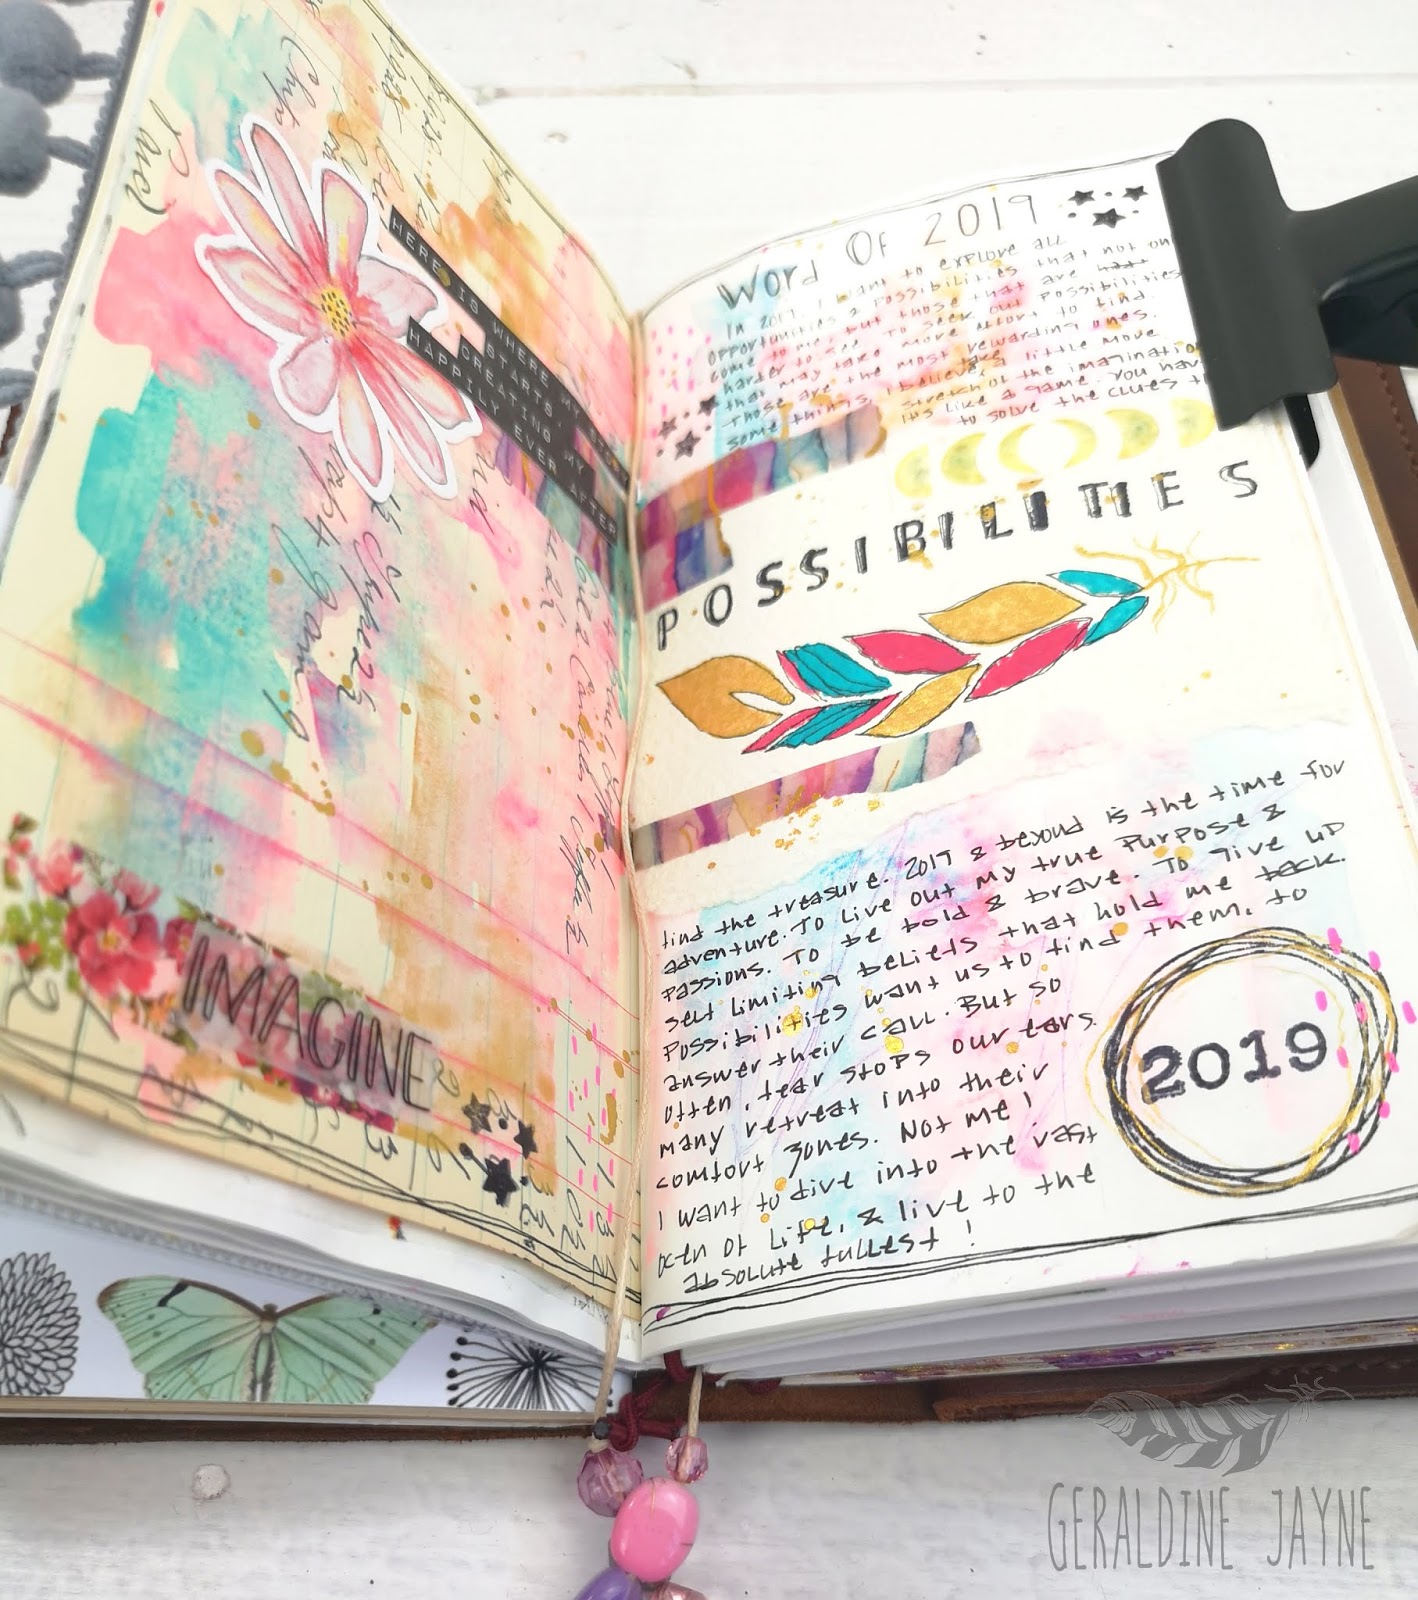 HERE IS WHERE MY STORY
STARTS,
CREATING MY
HAPPILY EVER AFTER
IMAGINE
Word Of 2019
In 2019, I want to explore all
opportunities & possibilities that not only
come to me, but those that are
harder to see. To seek out possibilities
that may take more effort to find.
Those are the most rewarding ones.
some things, I believe, take a little move,
stretch of the imagination
It's like a game. You have
to solve the clues to
POSSIBILITIES
find the treasure. 2019 & beyond is the time for
adventure. To live out my true purpose &
passions. To be bold & brave. To give up
self limiting beliefs that hold me back.
Possibilities want us to find them, to
answer their call. But so
often, fear stops our ears.
many retreat into their
comfort zones. Not me!
I want to dive into the vast
ocen of life, & live to the
absolute fullest!
2019
GERALDINE JAYNE